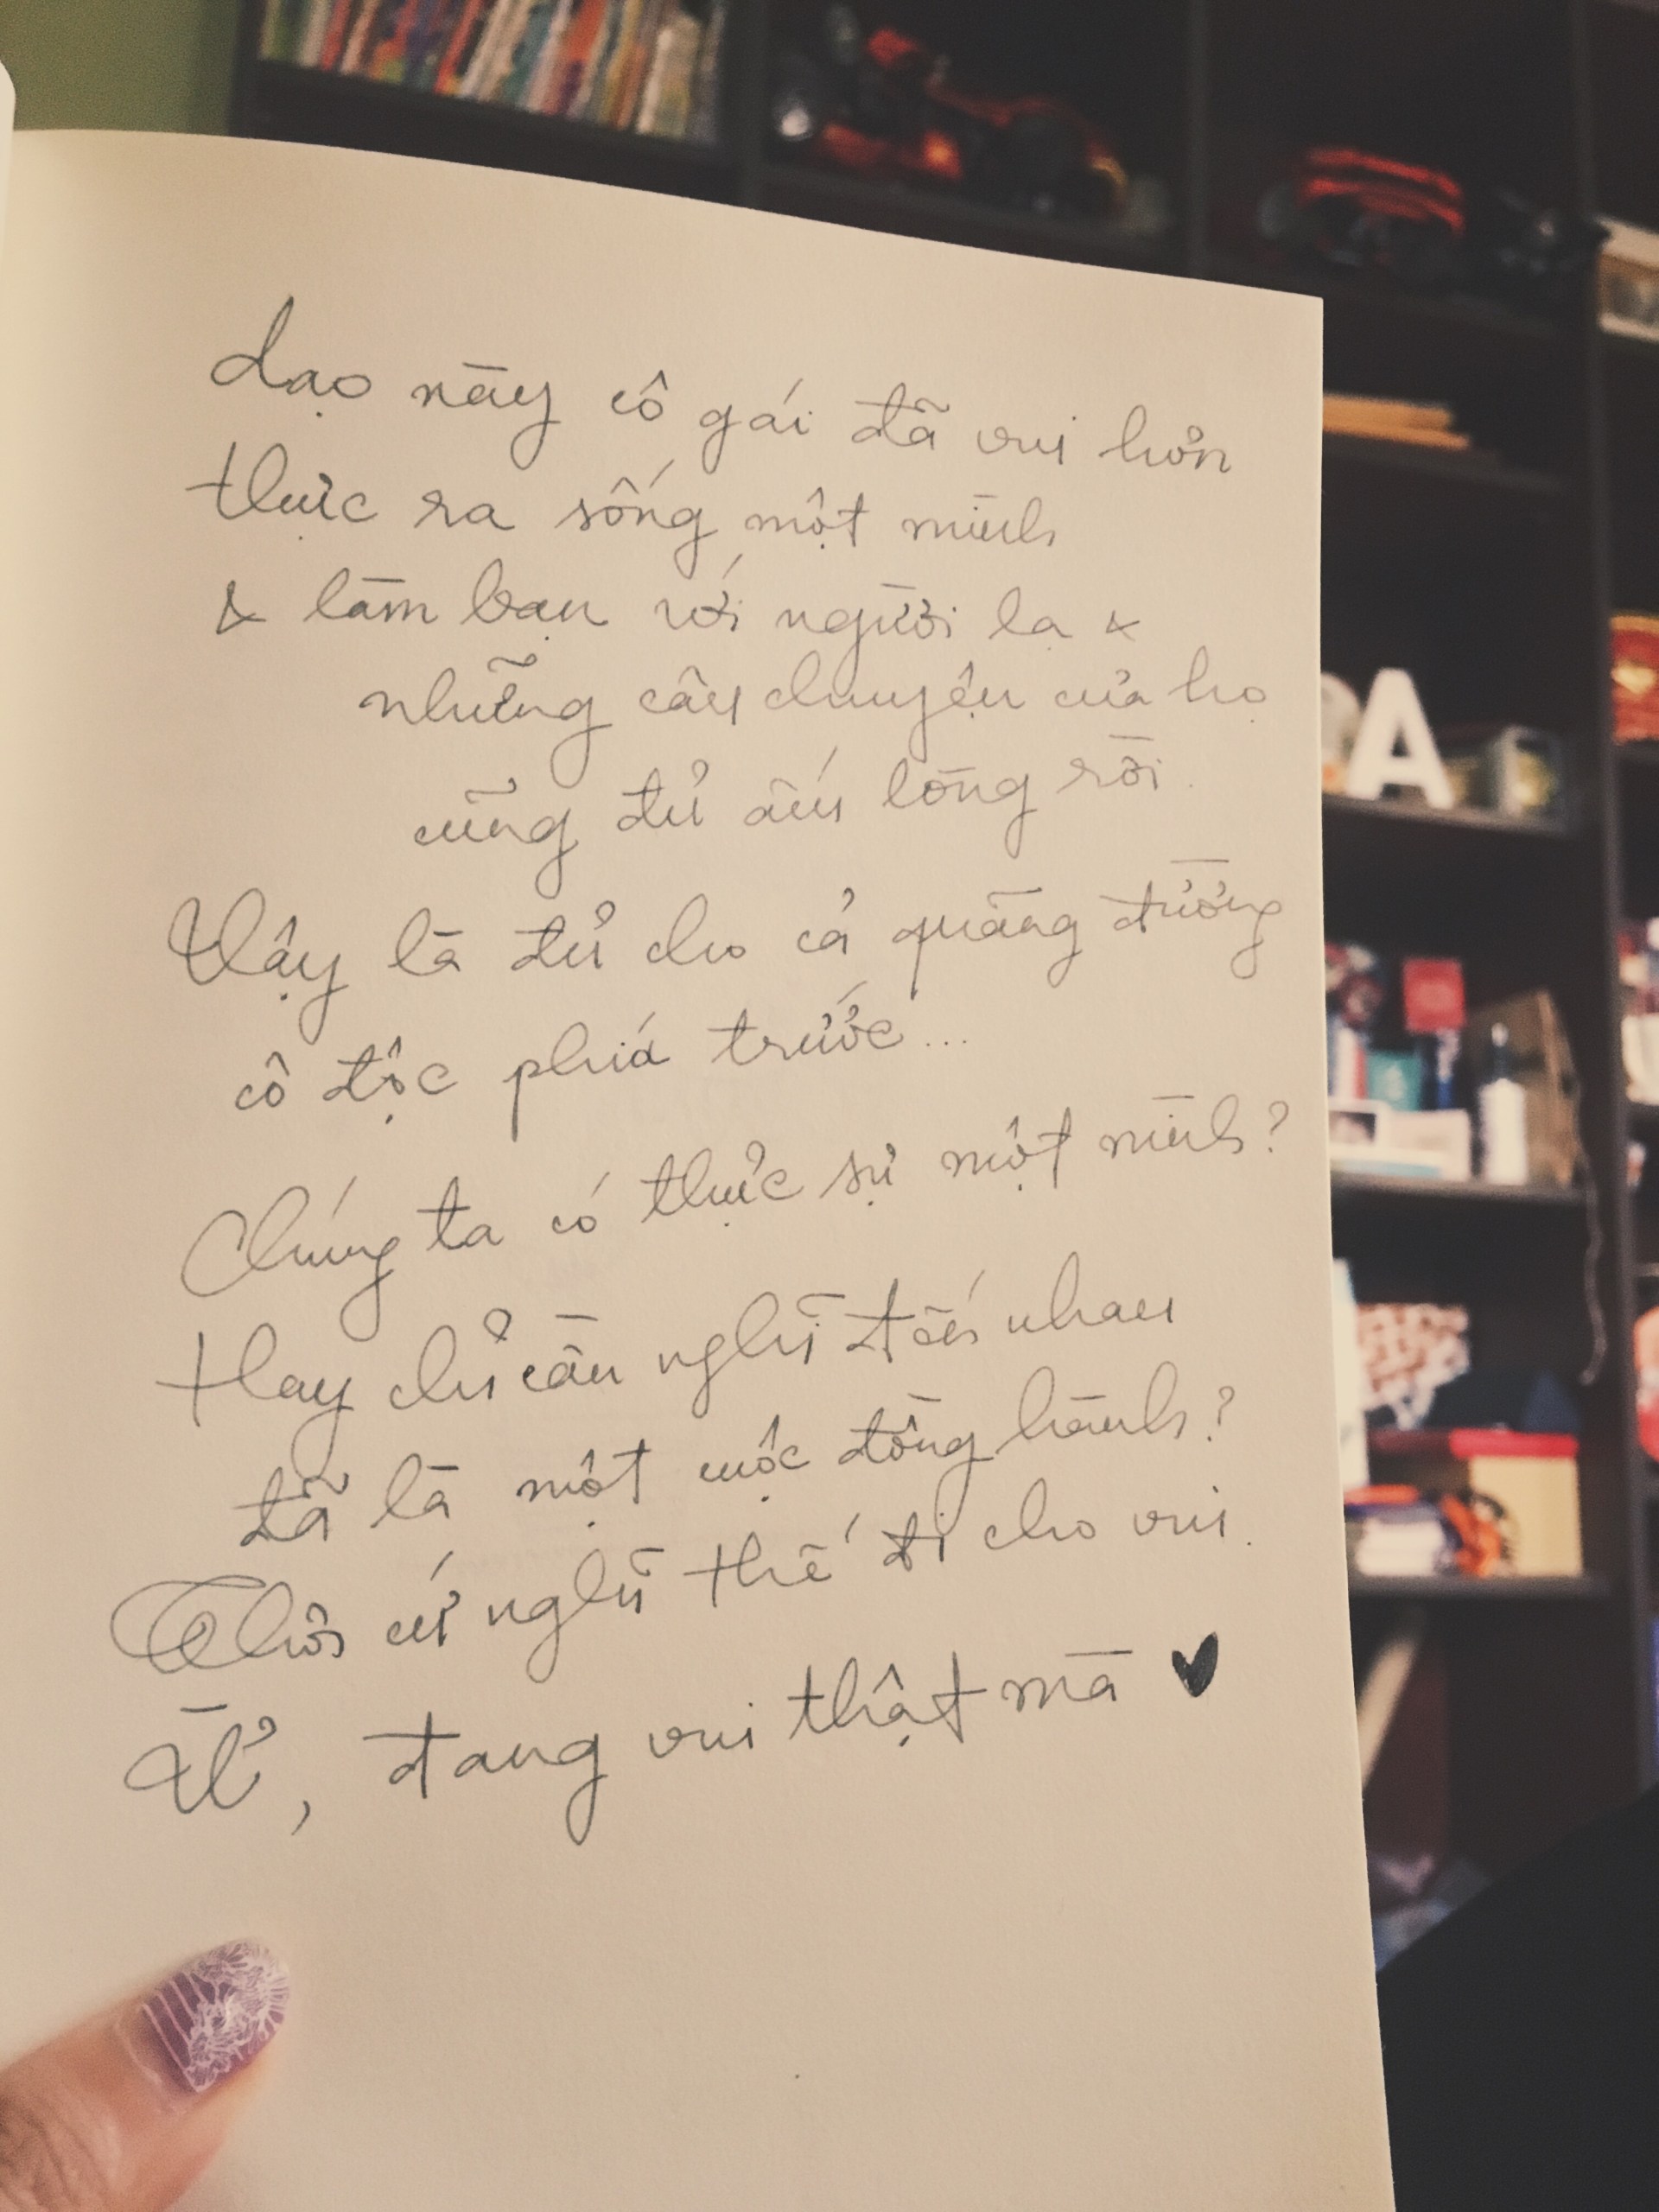 dạo này cô gái đã vui hơn
thực ra sống một mình
& làm bạn với người lạ &
những câu chuyện của họ
cũng đủ ấm lòng rồi.
Vậy là đủ cho cả quãng đường
cô độc phía trước...
Chúng ta có thực sự một mình?
Hay chỉ cần nghĩ đến nhau
đã là một cuộc đồng hành?
Thôi cứ nghĩ thế đi cho vui.
Ừ, đang vui thật mà ♥
A